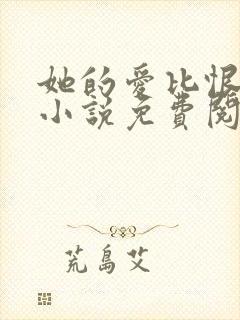 她的愛比恨
小說免費閱
荒島艾